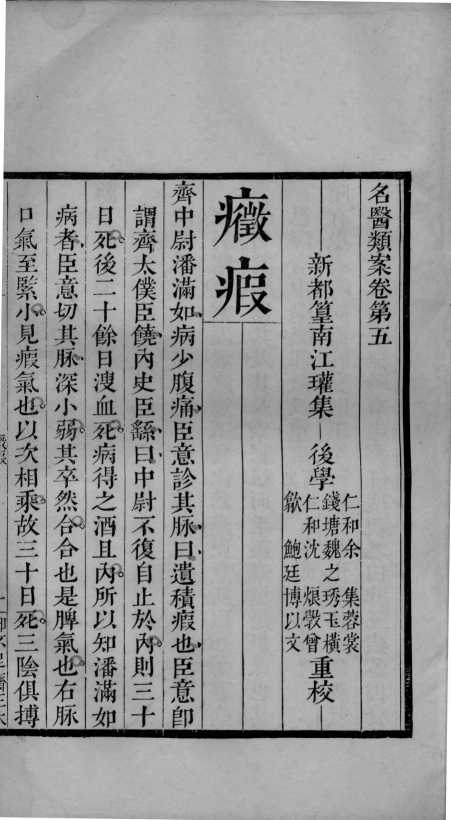 名醫類案卷第五
新都篁南江瓘集
後學
仁和余　集蓉裳
錢塘魏之琇玉橫
仁和沈　烺彀曾
歙　鮑廷博以文
重校
癥瘕
齊中尉潘滿如病少腹痛臣意診其脉曰遺積瘕也臣意卽
謂齊太僕臣饒內史臣繇曰中尉不復自止於內則三十
日死後二十餘日溲血死病得之酒且內所以知潘滿如
病者臣意切其脉深小弱其卒然合合也是脾氣也右脉
口氣至緊小見瘕氣也以次相乘故三十日死三陰俱搏